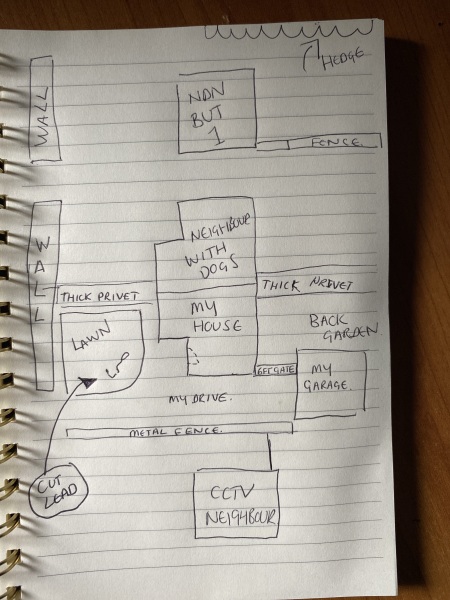 HEDGE
WALL
NDN
BUT
1
FENCE.
WALL
NEIGHBOUR
WITH
DOGS
THICK PRIVET
THICK PRIVET
MY
HOUSE
LAWN
BACK
GARDEN
6FT GATE
MY
GARAGE.
MY DRIVE.
METAL FENCE.
CUT
LEAD
CCTV
NEIGHBOUR